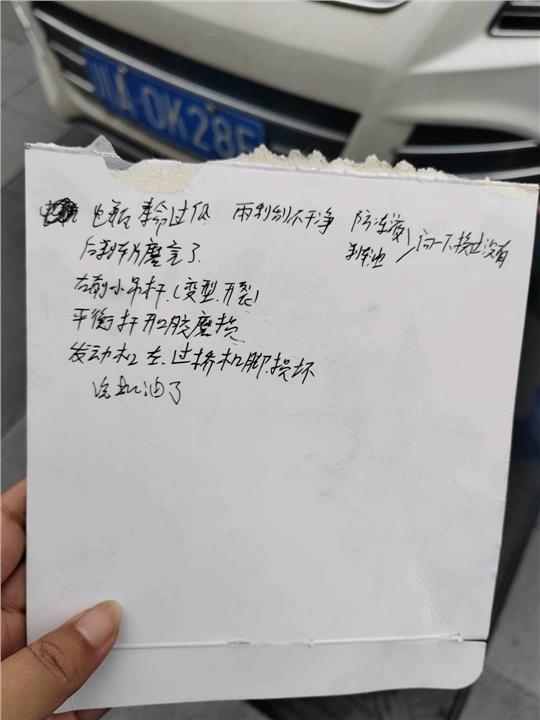 川A·0K28
电瓶 寿命过低 雨刮刮不干净 防冻液
刹车油 问一下换过没有
后刹车片磨完了.
右前小吊杆.(变型.开裂)
平衡杆开口胶磨损
发动机左.过桥机脚.损坏
机油了